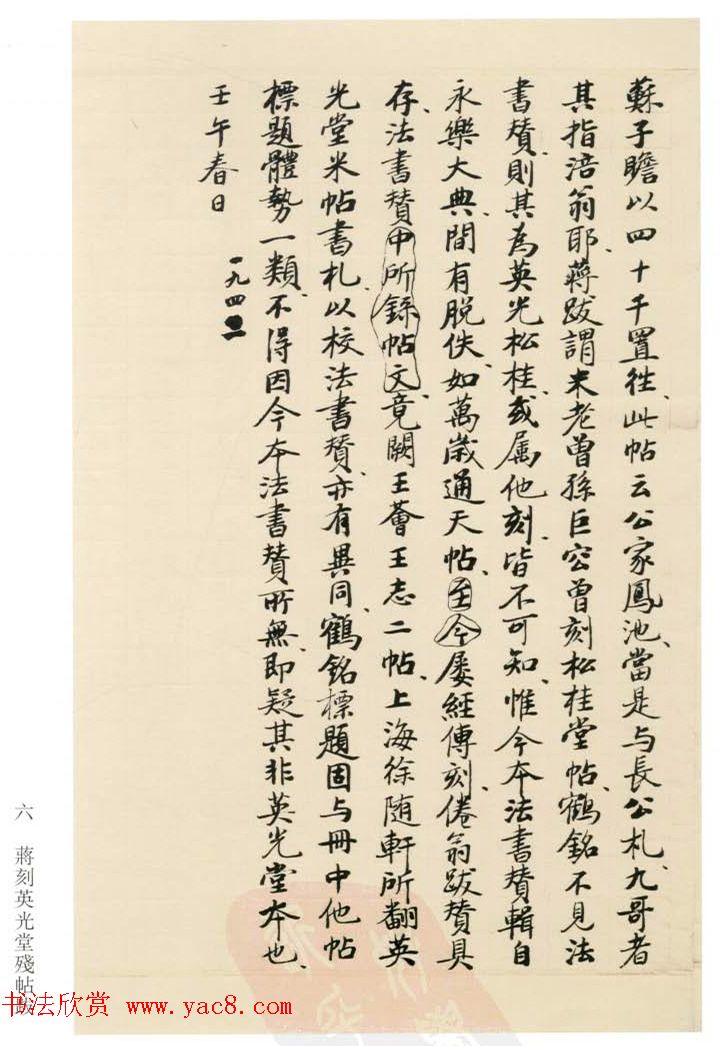 蘇子瞻以四十千置往、此帖云公家鳳池、當是与長公札、九哥者
其指涪翁耶、蔣跋謂米老曾孫巨容曾刻松桂堂帖、鶴銘不見法
書贊、則其為英光松桂、或属他刻、皆不可知、惟今本法書贊輯自
永樂大典、間有脱佚、如萬歲通天帖、至今屡經傳刻、倦翁跋贊具
存、法書贊中所錄帖文、竟闕王薈王志二帖、上海徐随軒所翻英
光堂米帖書札、以校法書贊、亦有異同、鶴銘標題固与冊中他帖
標題體勢一類、不得因今本法書贊所無、即疑其非英光堂本也、
壬午春日 一九四二
六 蔣刻英光堂殘帖跋
书法欣赏 www.yac8.com